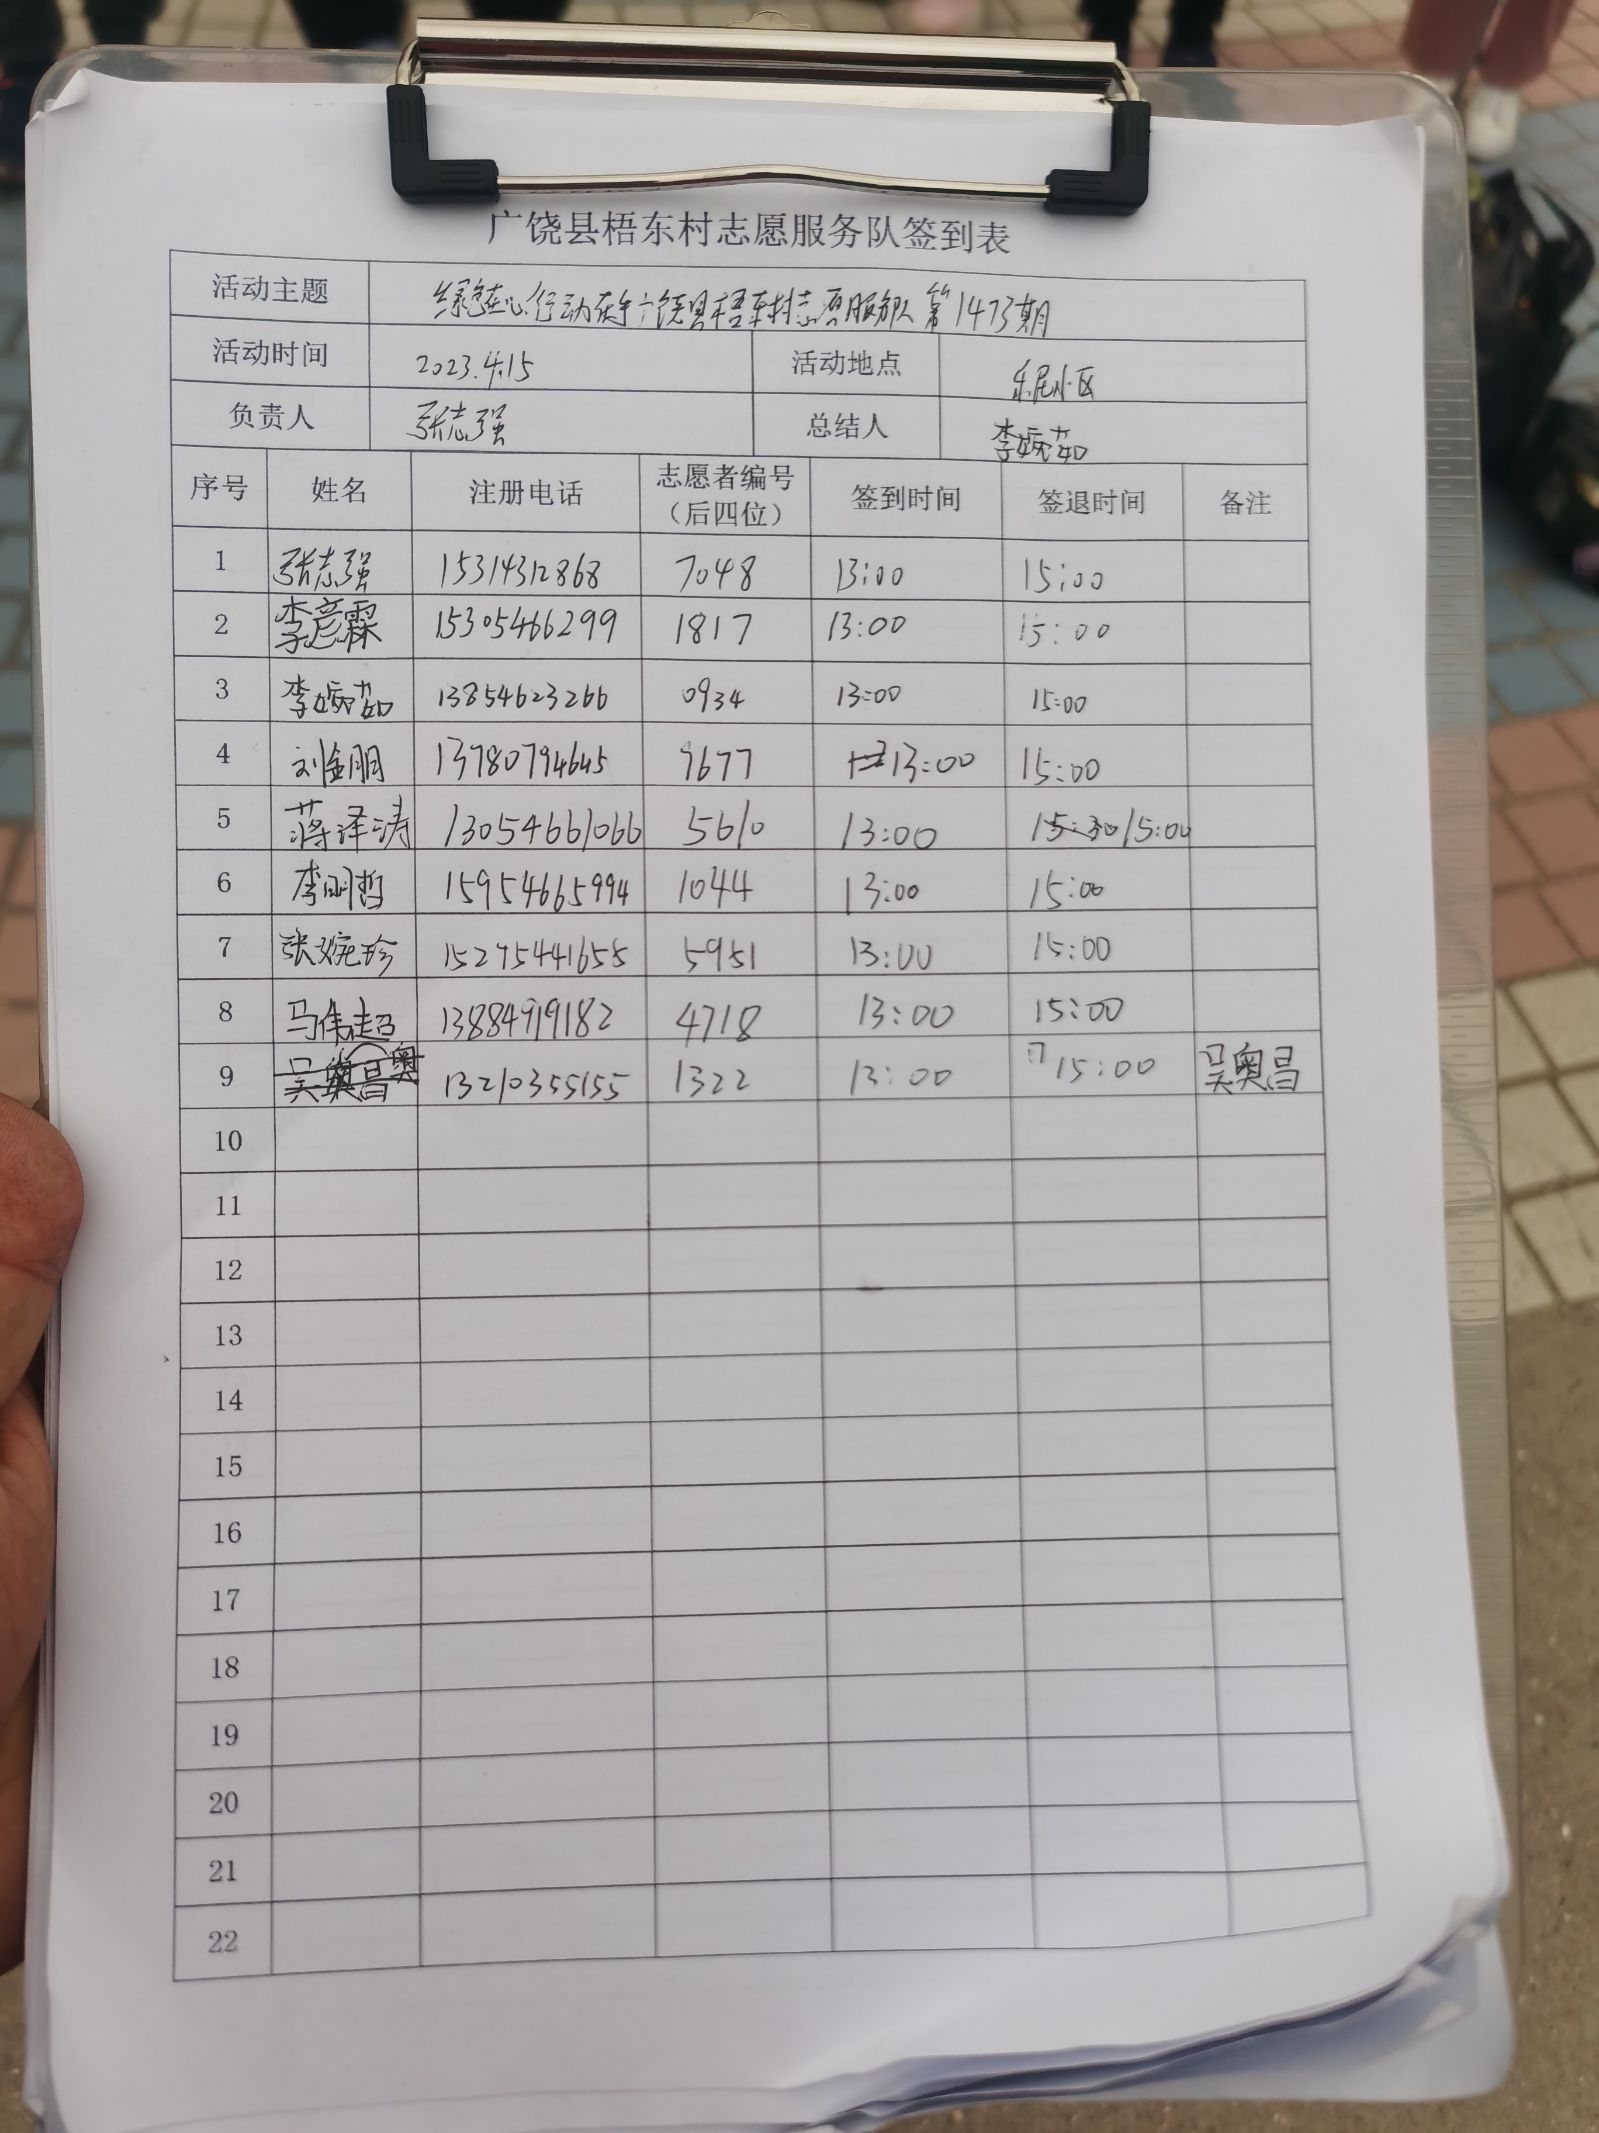 广饶县梧东村志愿服务队签到表
活动主题 绿色在心 行动在手 广饶县梧东村志愿服务队 第1473期
活动时间 2023.4.15 活动地点 乐民小区
负责人 张志强 总结人 李婉茹
序号 姓名 注册电话 志愿者编号（后四位） 签到时间 签退时间 备注
1 张志强 15314312868 7048 13:00 15:00
2 李彦霖 15305466299 1817 13:00 15:00
3 李婉茹 13854623266 0934 13:00 15:00
4 刘金朋 13780794645 9677 13:00 15:00
5 蒋泽涛 13054661066 5610 13:00 15:30 15:00
6 李明哲 15954665994 1044 13:00 15:00
7 张婉珍 15275441658 5951 13:00 15:00
8 马伟超 13884919182 4718 13:00 15:00
9 吴奥昌 13210355155 1322 13:00 15:00 吴奥昌
10
11
12
13
14
15
16
17
18
19
20
21
22